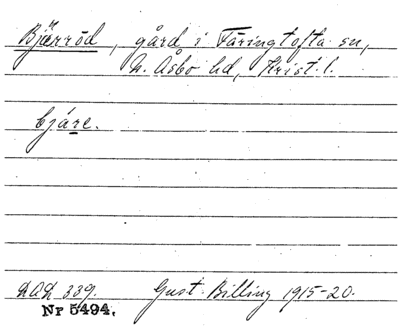 Bjärröd, gård i Färingtofta sn,
N. Åsbo hd, Krist. l.
bjáre.
DAL 339. Gust. Billing 1915-20.
Nr 5494.